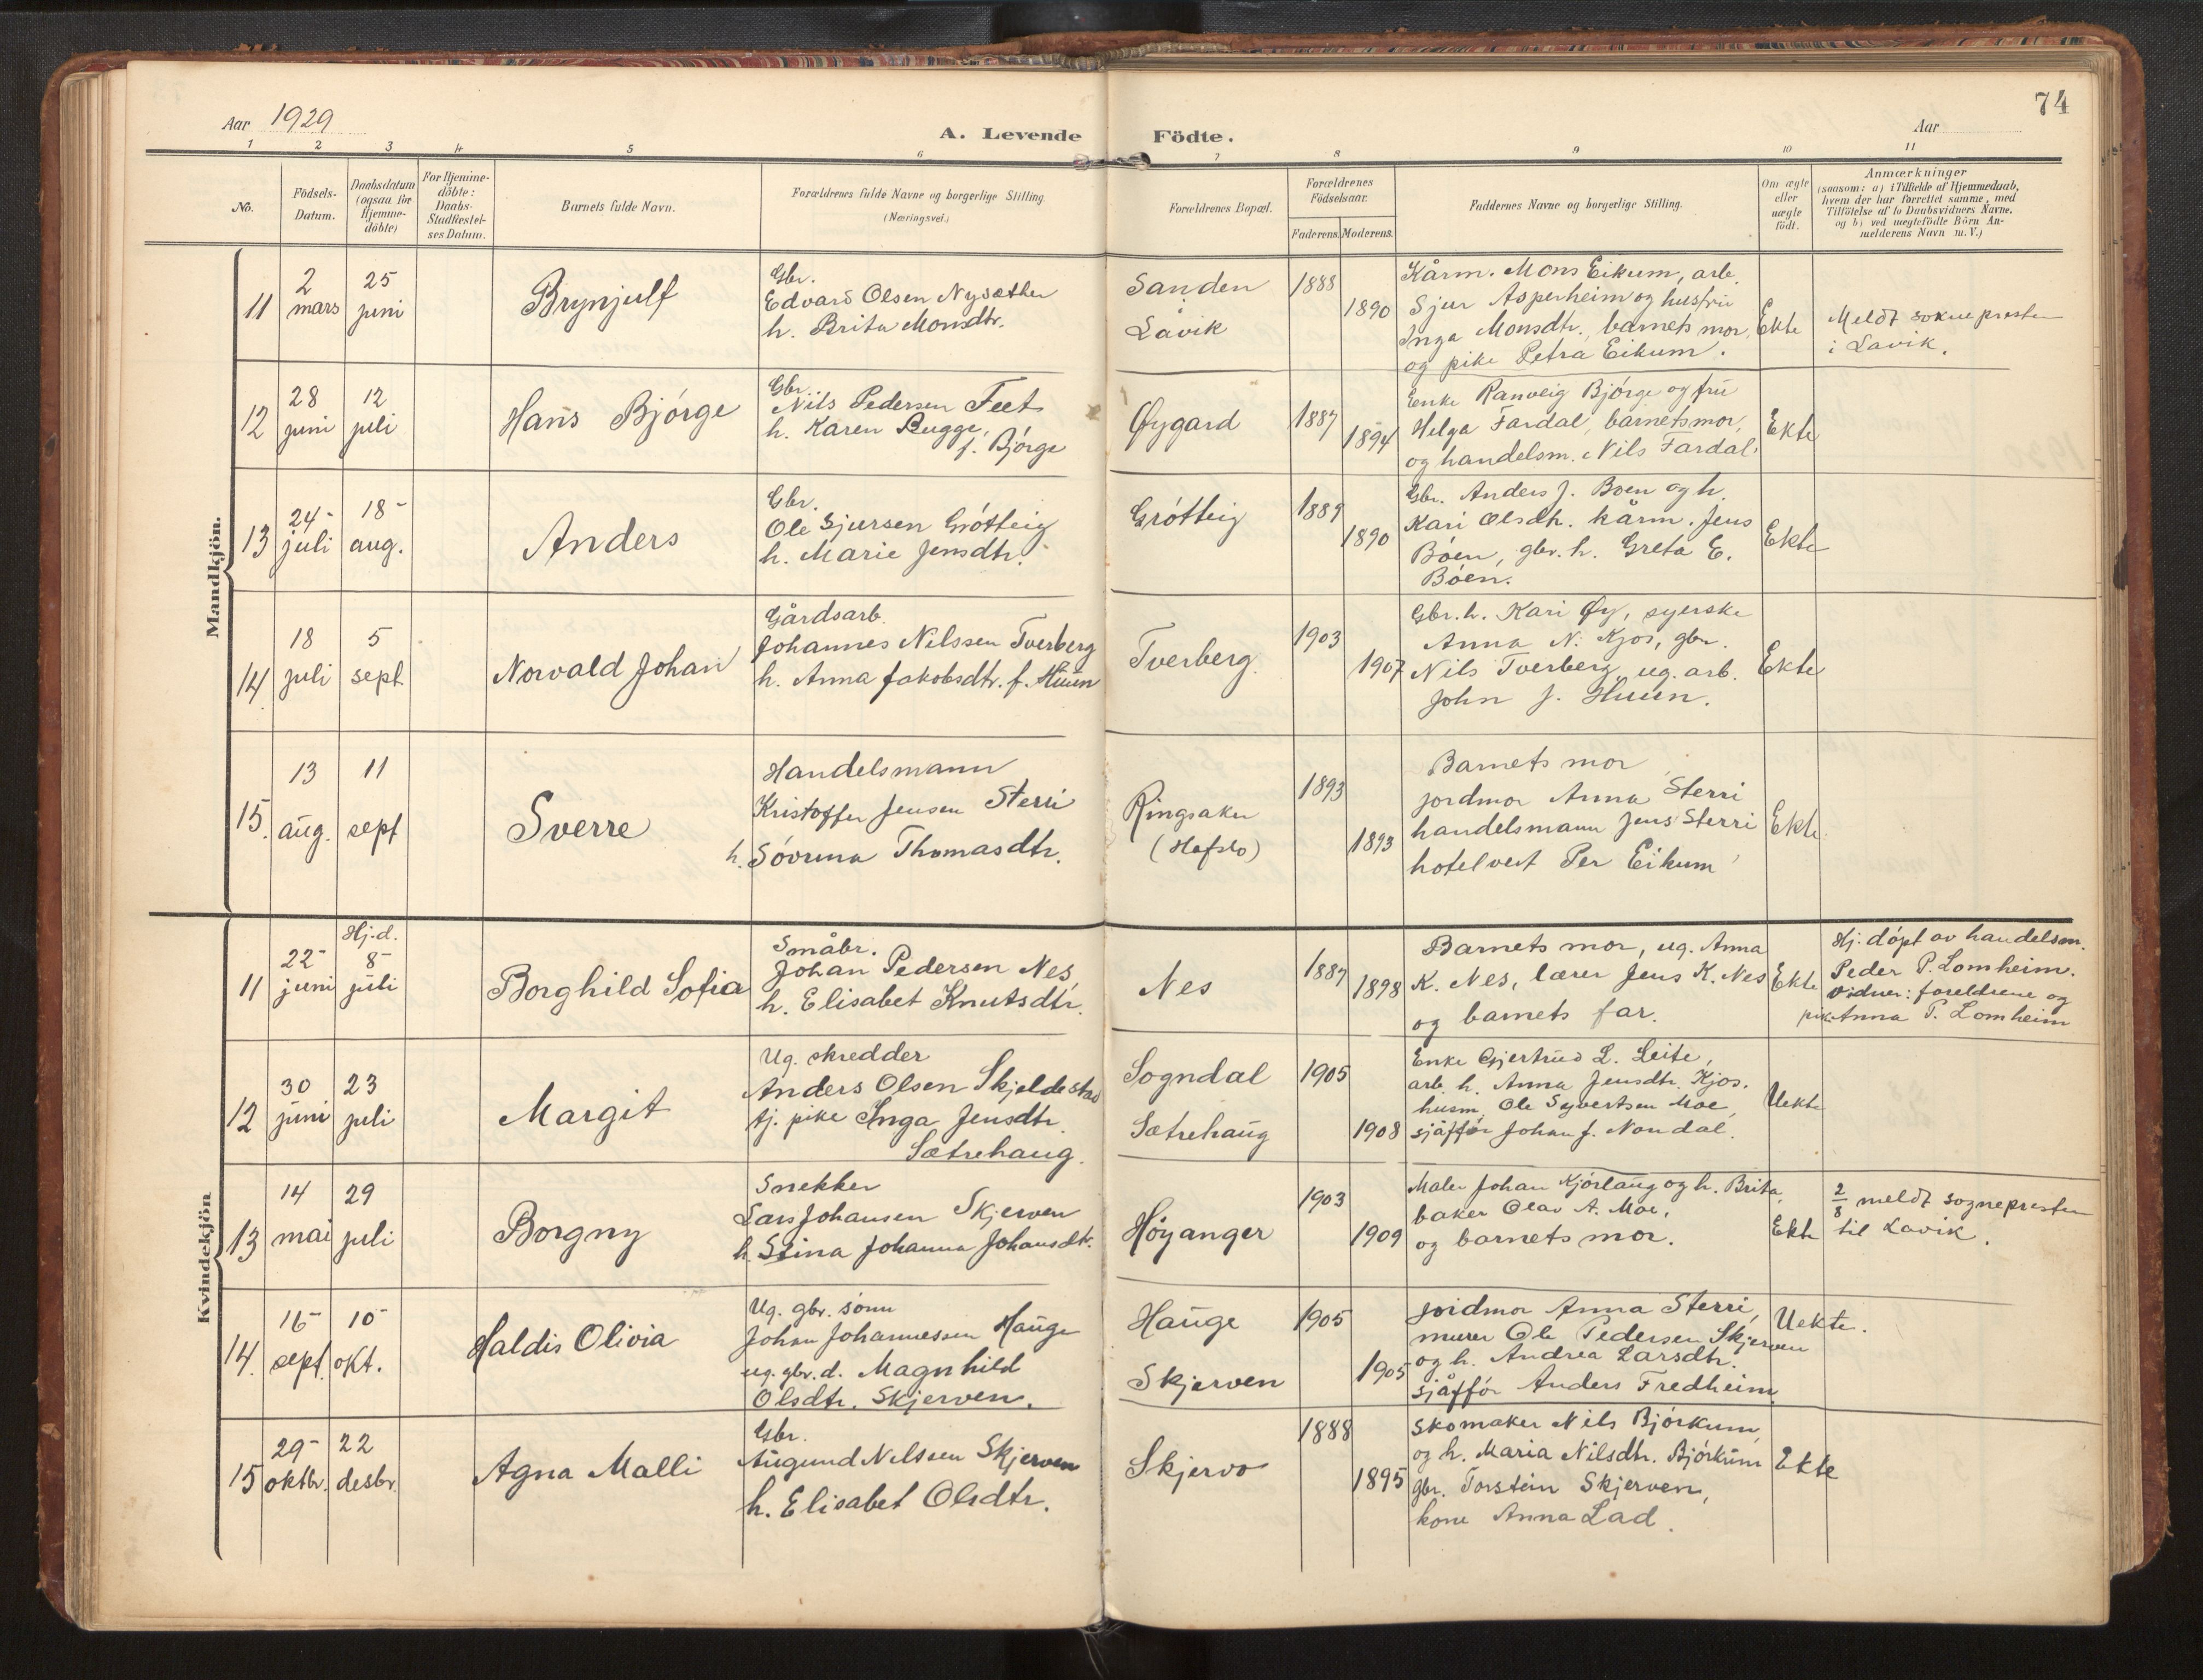 Aar 1929
A. Levende Födte.
74
Aar
1 2 3 4 5 6 7 8 9 10 11
No.
Födsels-
Datum.
Daabsdatum
(ogsaa for
Hjemme-
döbte)
For Hjemme-
döbte:
Daabs-
Stadfæstel-
ses Datum.
Barnets fulde Navn.
Forældrenes fulde Navne og borgerlige Stilling.
(Næringsvei.)
Forældrenes Bopæl.
Forældrenes
Födselsaar.
Faderens. Moderens.
Faddernes Navne og borgerlige Stilling.
Om ægte
eller
uægte
födt.
Anmærkninger
(saasom: a) i Tilfælde af Hjemmedaab,
hvem der har forrettet samme, med
Tilföielse af to Daabsvidners Navne.
og b) ved uægtefödte Börn An-
melderens Navn m. V.)
Mandkjön.
11
2
mars
25
juni
Brynjulf
Gbr.
Edvard Olsen Nysæther
h. Brita Monsdtr.
Sanden
Lavik
1888
1890
Kårm. Mons Eikum, arb.
Sjur Asperheim og hustru
Inga Monsdtr., barnets mor,
og pike Petra Eikum.
Ekte
Meldt soknepresten
i Lavik.
12
28
juni
12
juli
Hans Bjórge
Gbr.
Nils Pedersen Feet
h. Karen Bugge,
f. Bjórge
Øygard
1887
1894
Enke Ranveig Bjórge og fru
Helga Fardal, barnets mor,
og handelsm. Nils Fardal.
Ekte
13
24-
juli
18-
aug.
Anders
Gbr.
Ole Sjursen Grótteig
h. Marie Jensdtr.
Grótteig
1889
1890
Gbr. Anders J. Boen og h.
Kari Olsdtr. kårm. Jens
Bóen, gbr. h. Greta E.
Bóen.
Ekte
14
18
juli
5
sept
Norvald Johan
Gårdsarb.
Johannes Nilssen Tverberg
h. Anna Jakobsdtr. f. Huun
Tverberg.
1903
1907
Gbr. h. Kari Øy, syerske
Anna N. Kjos, gbr.
Nils Tverberg, ug. arb.
John J. Huun.
Ekte
15.
13
aug.
11
sept
Sverre
Handelsmann
Kristoffer Jensen Sterri
h. Sóvrina Thomasdtr.
Ringsaker
(Hafslo)
1893
1893
Barnets mor,
jordmor Anna Sterri
handelsmann Jens Sterri
hotelvert Per Eikum
Ekte.
Kvindekjön
11
22-
juni
Hj.d.
8-
juli
Borghild Sofia
Småbr.
Johan Pedersen Nes
h. Elisabet Knutsdtr.
Nes
1887
1898
Barnets mor, ug. Anna
K. Nes, lærer Jens K. Nes
og barnets far.
Ekte
Hj. dópt av handelsm.
Peder P. Lomheim.
Vidner: foreldrene og
pike Anna P. Lomheim
12
30
juni
23
juli
Margit
Ug. skredder
Anders Olsen Skjeldestad
tj. pike Inga Jensdtr.
Sætrehaug.
Sogndal
Sætrehaug
1905
1908
Enke Gjertrud L. Leite,
arb. h. Anna Jensdtr. Kjos.
husm. Ole Syvertsen Moe,
sjåffór Johan J. Nondal.
Uekte
13
14
mai
29
juli
Borgny
Snekker
Lars Johansen Skjerven
h. Stina Johanna Johansdtr.
Hóyanger
1903
1909
Maler Johan Kjórlaug og h. Brita,
baker Olav A. Moe,
og barnets mor.
Ekte
2/8 meldt sognepresten
til Lavik.
14.
16-
sept.
10-
okt.
Haldis Olivia
Ug. gbr. sónn
Johan Johannessen Hauge
ug. gbr. d. Magnhild
Olsdtr. Skjerven.
Hauge
Skjerven
1905
1905
Jordmor Anna Sterri,
murer Ole Pedersen Skjerven
og h. Andrea Larsdtr.
sjåffór Anders Fredheim.
Uekte.
15
29-
oktbr.
22
desbr.
Agna Malli
Gbr.
Augund Nilssen Skjerven
h. Elisabet Olsdtr.
Skjervo
1888
1895
Skomaker Nils Bjórkum,
og h. Maria Nilsdtr. Bjórkum
gbr. Torstein Skjerven,
kone Anna Lad.
Ekte